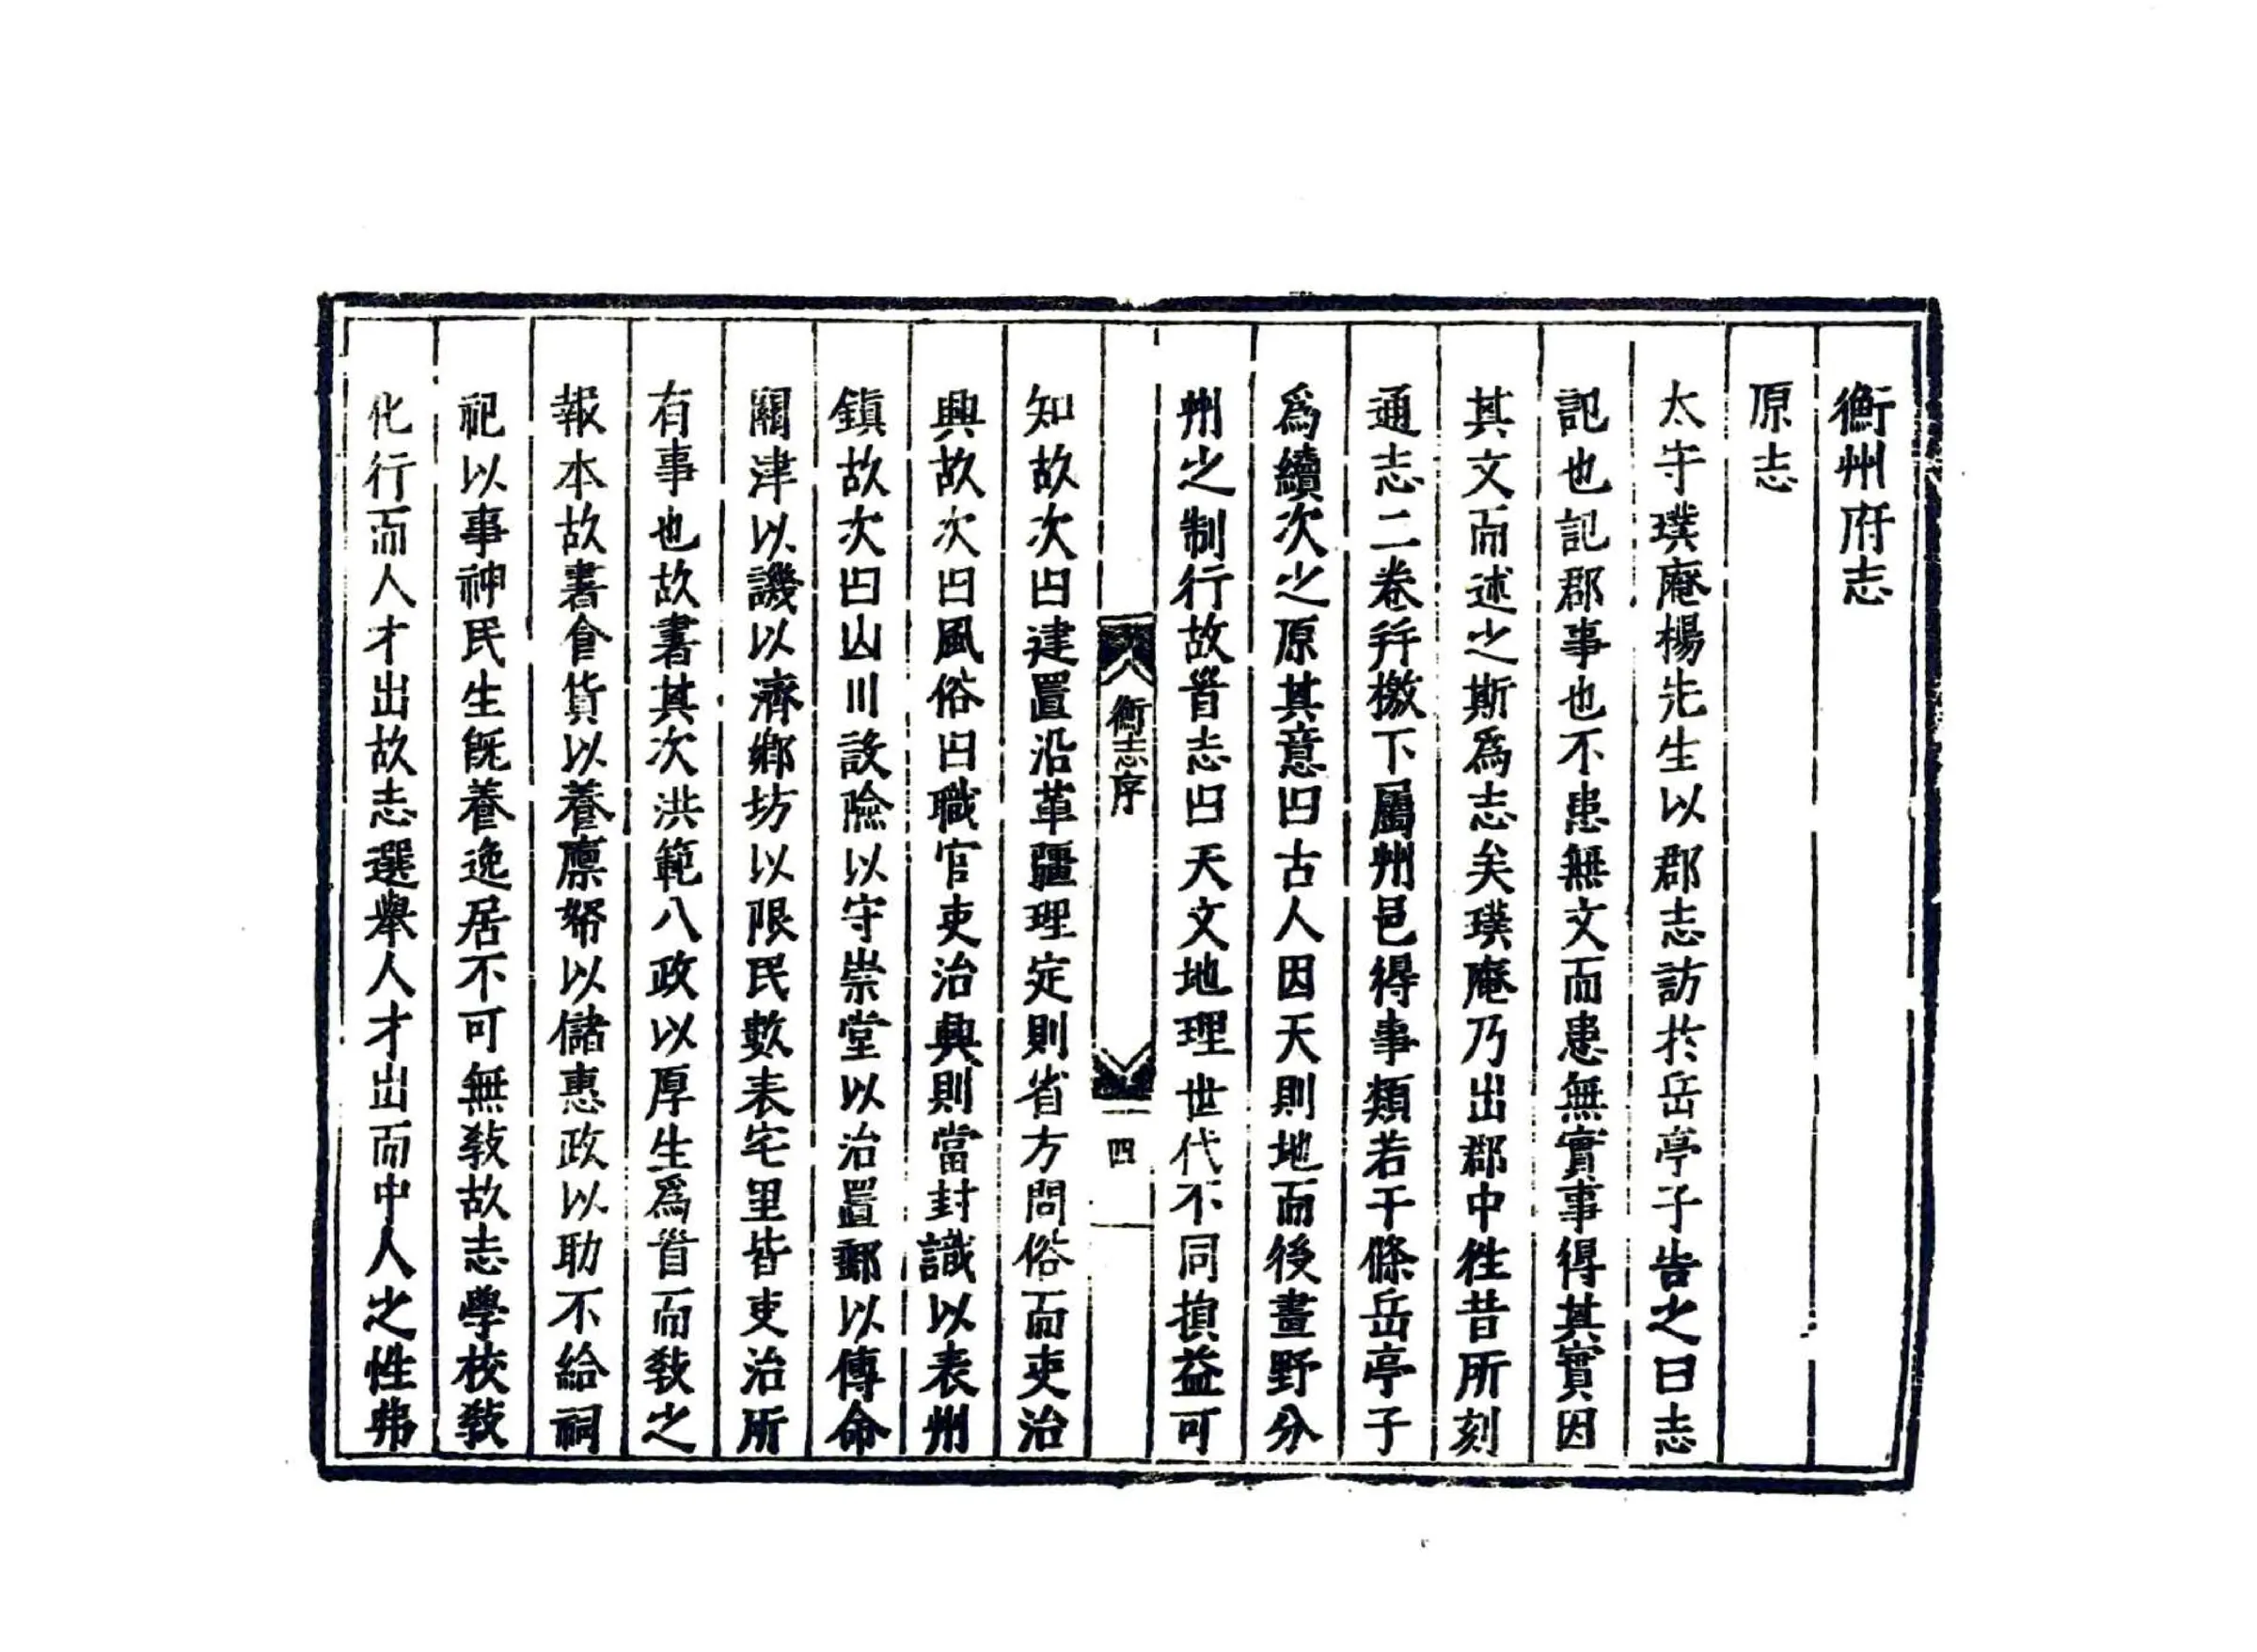 衡州府志
原志
太守璞庵楊先生以郡志訪於岳亭子告之曰志
記也記郡事也不患無文而患無實事得其實因
其文而述之斯為志矣璞庵乃出郡中徃昔所刻
通志二卷并檄下屬州邑得事類若干條岳亭子
為續次之原其意曰古人因天則地而後畫野分
州之制行故首志曰天文地理世代不同損益可
衡志序
四
知故次曰建置沿革疆理定則省方問俗而吏治
興故次曰風俗曰職官吏治興則當封識以表州
鎮故次曰山川設險以守崇堂以治置郵以傳命
關津以譏以濟鄉坊以限民數表宅里皆吏治所
有事也故書其次洪範八政以厚生爲首而教之
報本故書食貨以養廪帑以儲惠政以助不給祠
祀以事神民生既養逸居不可無教故志學校教
化行而人才出故志選舉人才出而中人之性弗